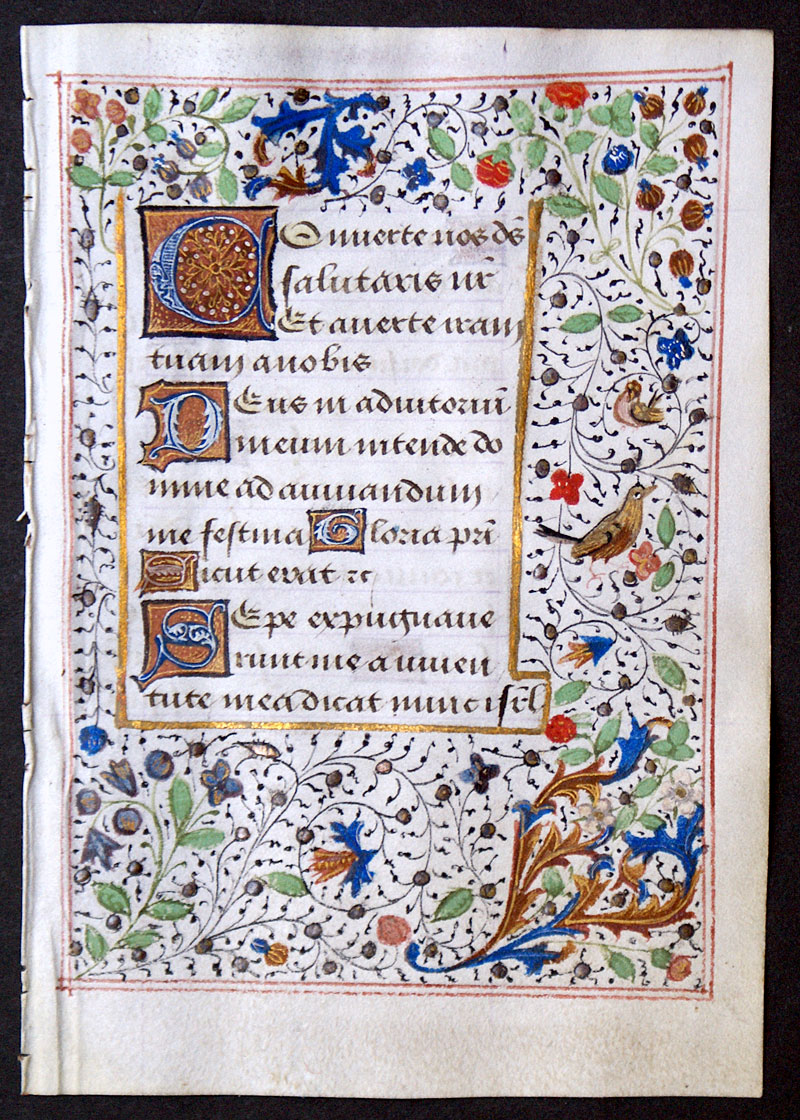 Conuerte nos ds̄
salutaris nr̄
Et auerte iram
tuam a nobis
Deus in adiutoriū
meum intende do
mine ad aiuuandum
me festina Gloria pri
Sicut erat ⁊c
Sepe expugnaue
runt me a iuuen
tute mea dicat nunc isrl